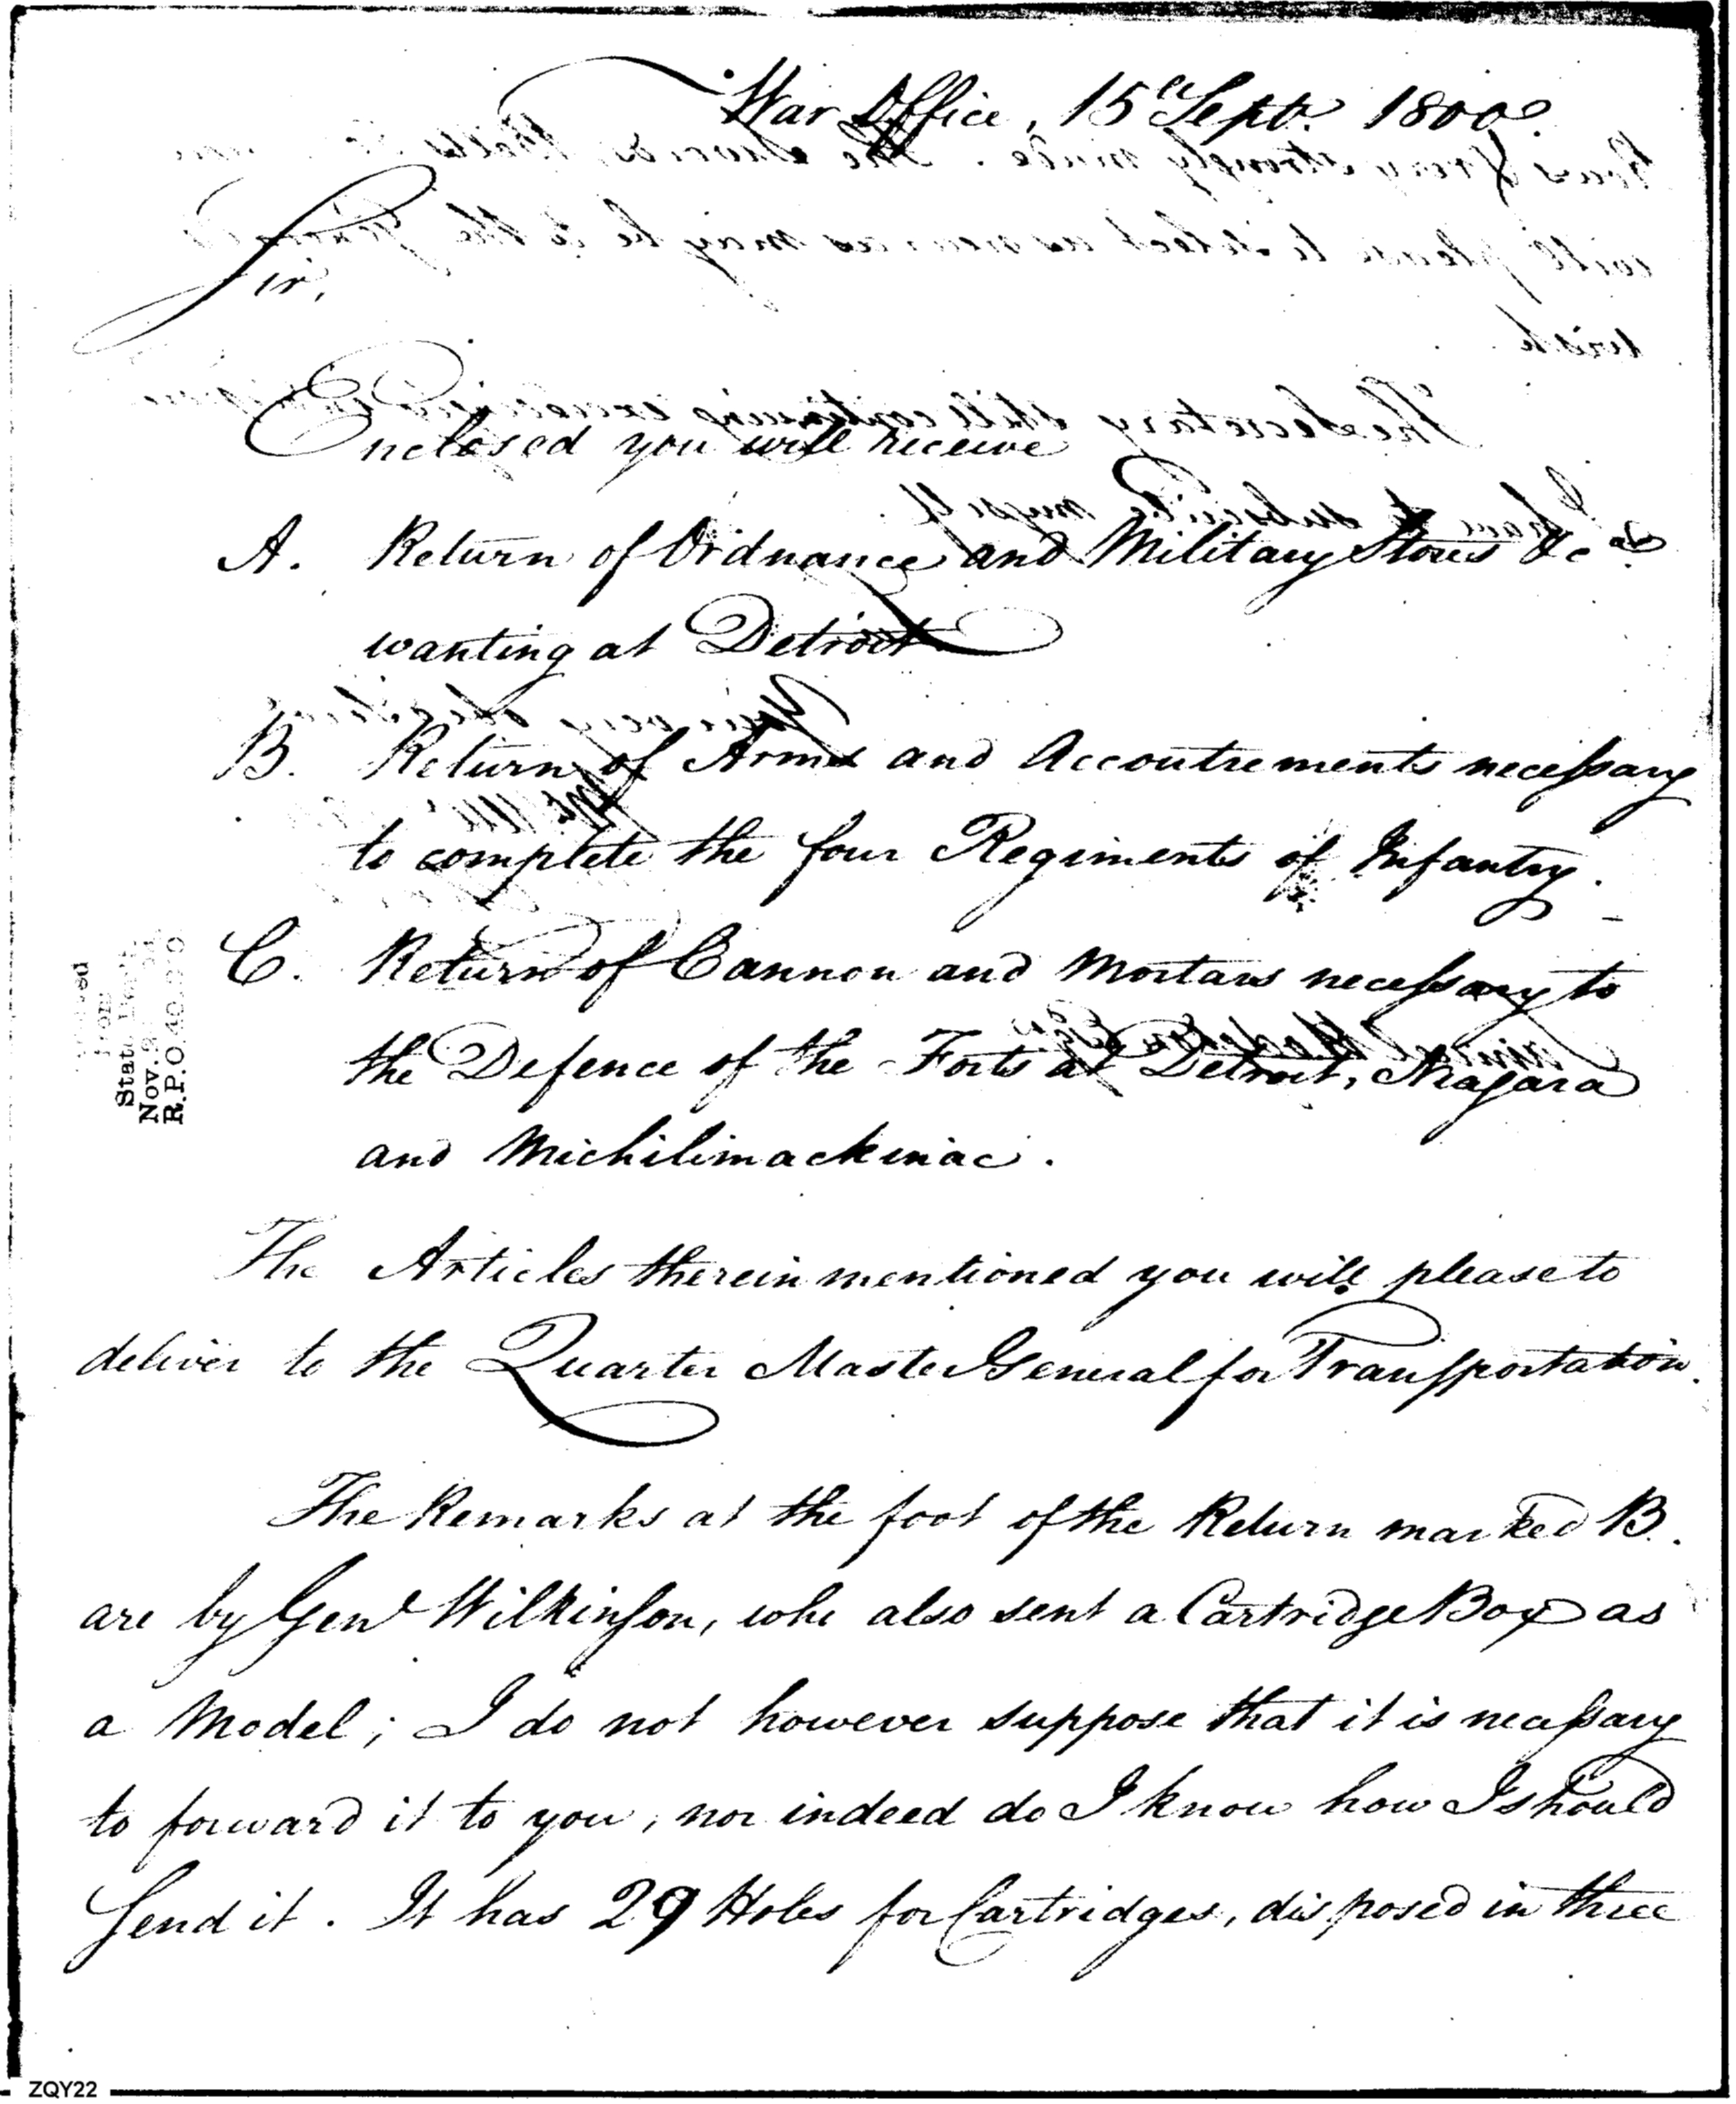 War Office, 15th Sept. 1800.
Sir,
Enclosed you will receive
A. Return of Ordnance and Military Stores &c.
wanting at Detroit
B. Return of Arms and Accoutrements necessary
to complete the four Regiments of Infantry.
C. Return of Cannon and Mortars necessary to
the Defence of the Forts at Detroit, Niagara
and Michilimackinac.
The Articles therein mentioned you will please to
deliver to the Quarter Master General for Transportation.
The Remarks at the foot of the Return marked B.
are by Genl Wilkinson, who also sent a Cartridge Box as
a Model; I do not however suppose that it is necessary
to forward it to you, nor indeed do I know how I should
Send it. It has 29 Holes for Cartridges, disposed in three
from
State
Nov.
R.P.O.
ZQY22